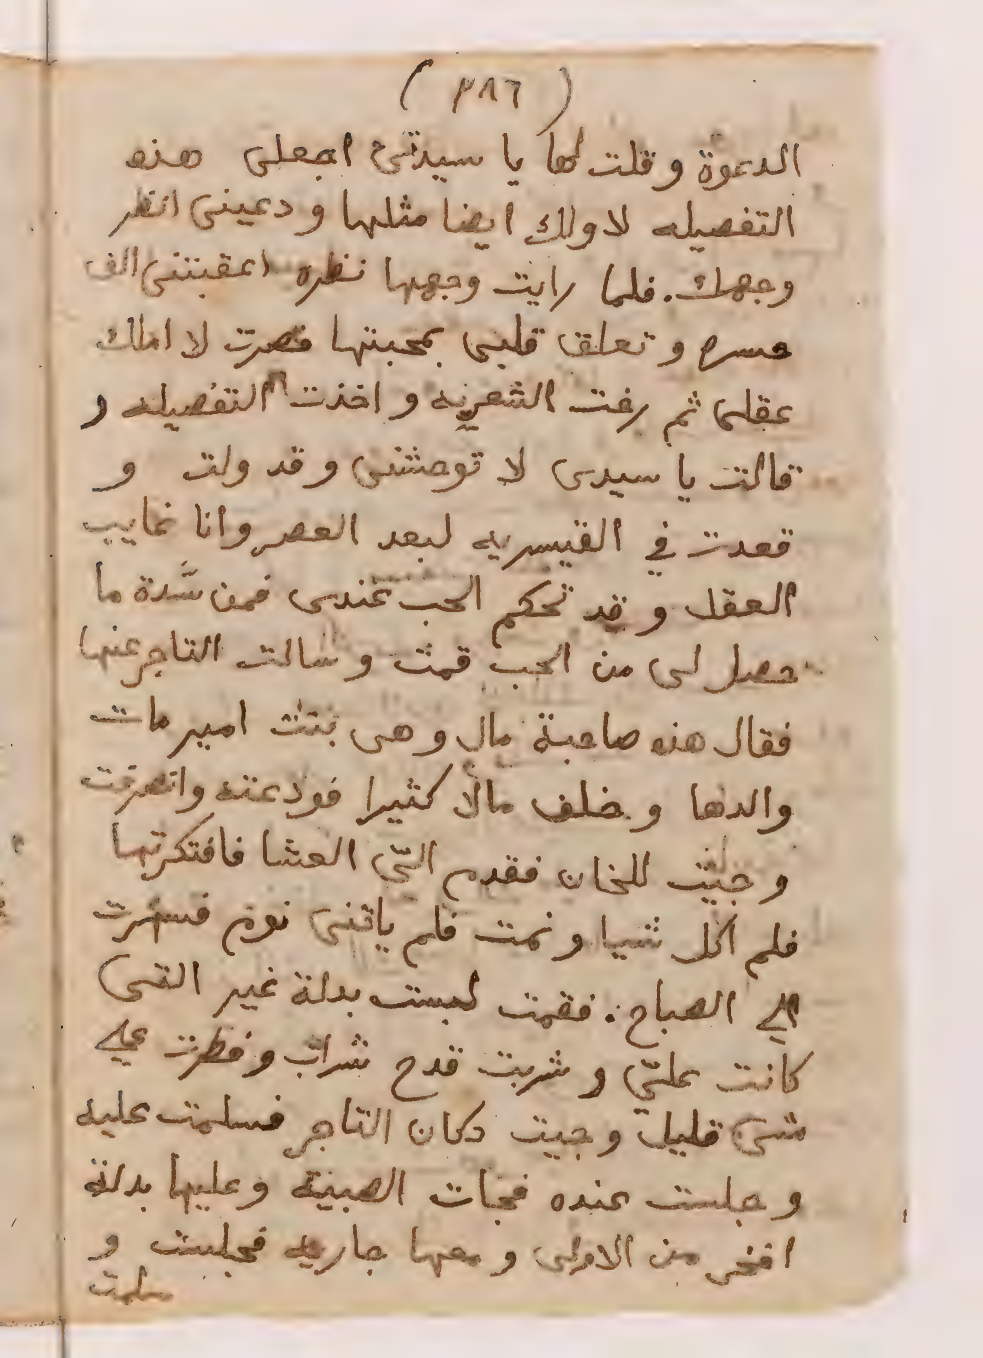 (٣٨٦)
الدعوة وقلت لها يا سيدتي اجعلى هذه
التفصيله لاولك ايضا مثلها ودعينى انظر
وجهك. فلما رايت وجهها نظره اعقبتنى الف
حسره وتعلق قلبى بمحبتها فصرت لا املك
عقلى ثم رخت الشعريه واخذت التفصيله و
قالت يا سيدى لا توحشنى وقد ولت و
قعدت في القيسريه لبعد العصر وانا غايب
العقل وقد تحكم الحب عندى فمن شدة ما
حصل لى من الحب قمت وسالت التاجر عنها
فقال هذه صاحبة مال وهى بنت امير مات
والدها وخلف مالا كثيرا فودعته وانصرفت
وجيت للخان فقدم اليّ العشا فافتكرتها
فلم اكل شيا ونمت فلم ياتنى نوم فسهرت
الي الصباح. فقمت لبست بدلة غير التى
كانت عليّ وشربت قدح شراب وفطرت علي
شى قليل وجيت دكان التاجر فسلمت عليه
وجلست عنده فجات الصبية وعليها بدلة
افخر من الاولى ومعها جاريه فجلست و
سلمت